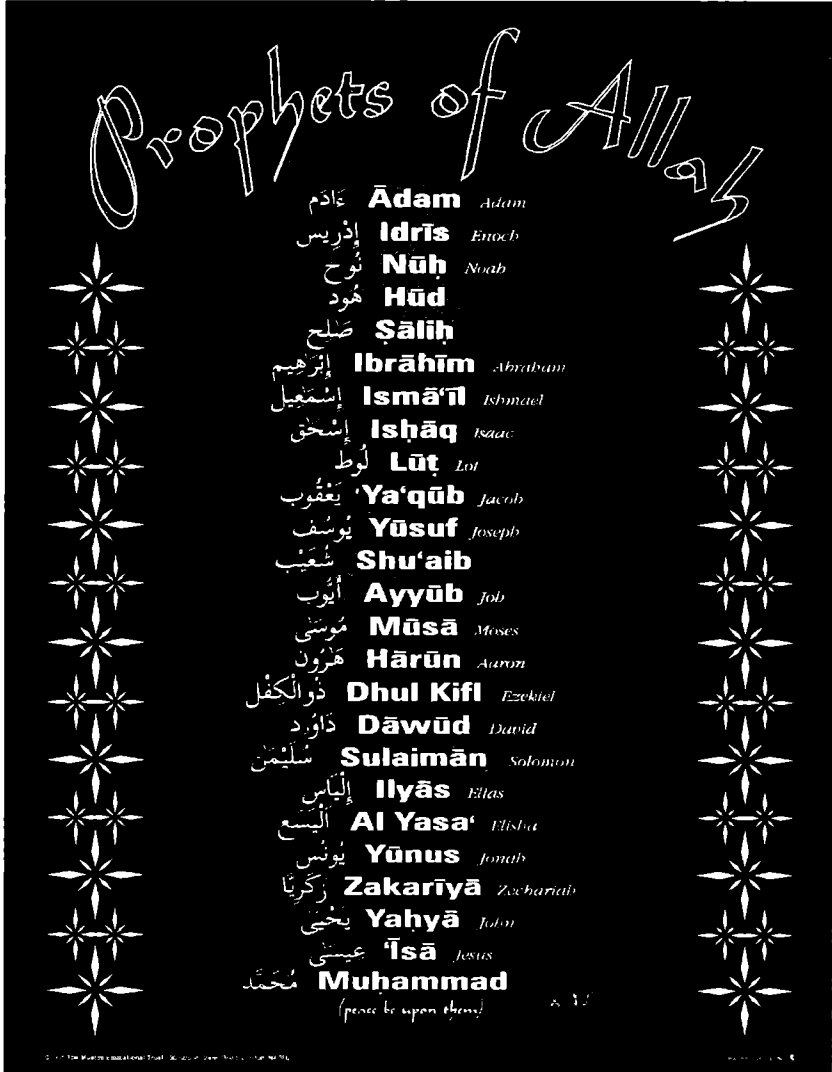 Prophets of Allah
ءَادَم Ādam Adam
إِدْرِيس Idrīs Enoch
نُوح Nūḥ Noah
هُود Hūd
صَٰلِح Ṣāliḥ
إِبْرَٰهِيم Ibrāhīm Abraham
إِسْمَٰعِيل Ismā‘īl Ishmael
إِسْحَٰق Isḥāq Isaac
لُوط Lūṭ Lot
يَعْقُوب ‘Ya‘qūb Jacob
يُوسُف Yūsuf Joseph
شُعَيْب Shu‘aib
أَيُّوب Ayyūb Job
مُوسَىٰ Mūsā Moses
هَٰرُون Hārūn Aaron
ذُوالْكِفْل Dhul Kifl Ezekiel
دَاوُۥد Dāwūd David
سُلَيْمَٰن Sulaimān Solomon
إِلْيَاس Ilyās Elias
اَلْيَسَع Al Yasa‘ Elisha
يُونُس Yūnus Jonah
زَكَرِيَّا Zakarīyā Zechariah
يَحْيَىٰ Yaḥyā John
عِيسَىٰ ‘Īsā Jesus
مُحَمَّد Muḥammad
(peace be upon them)